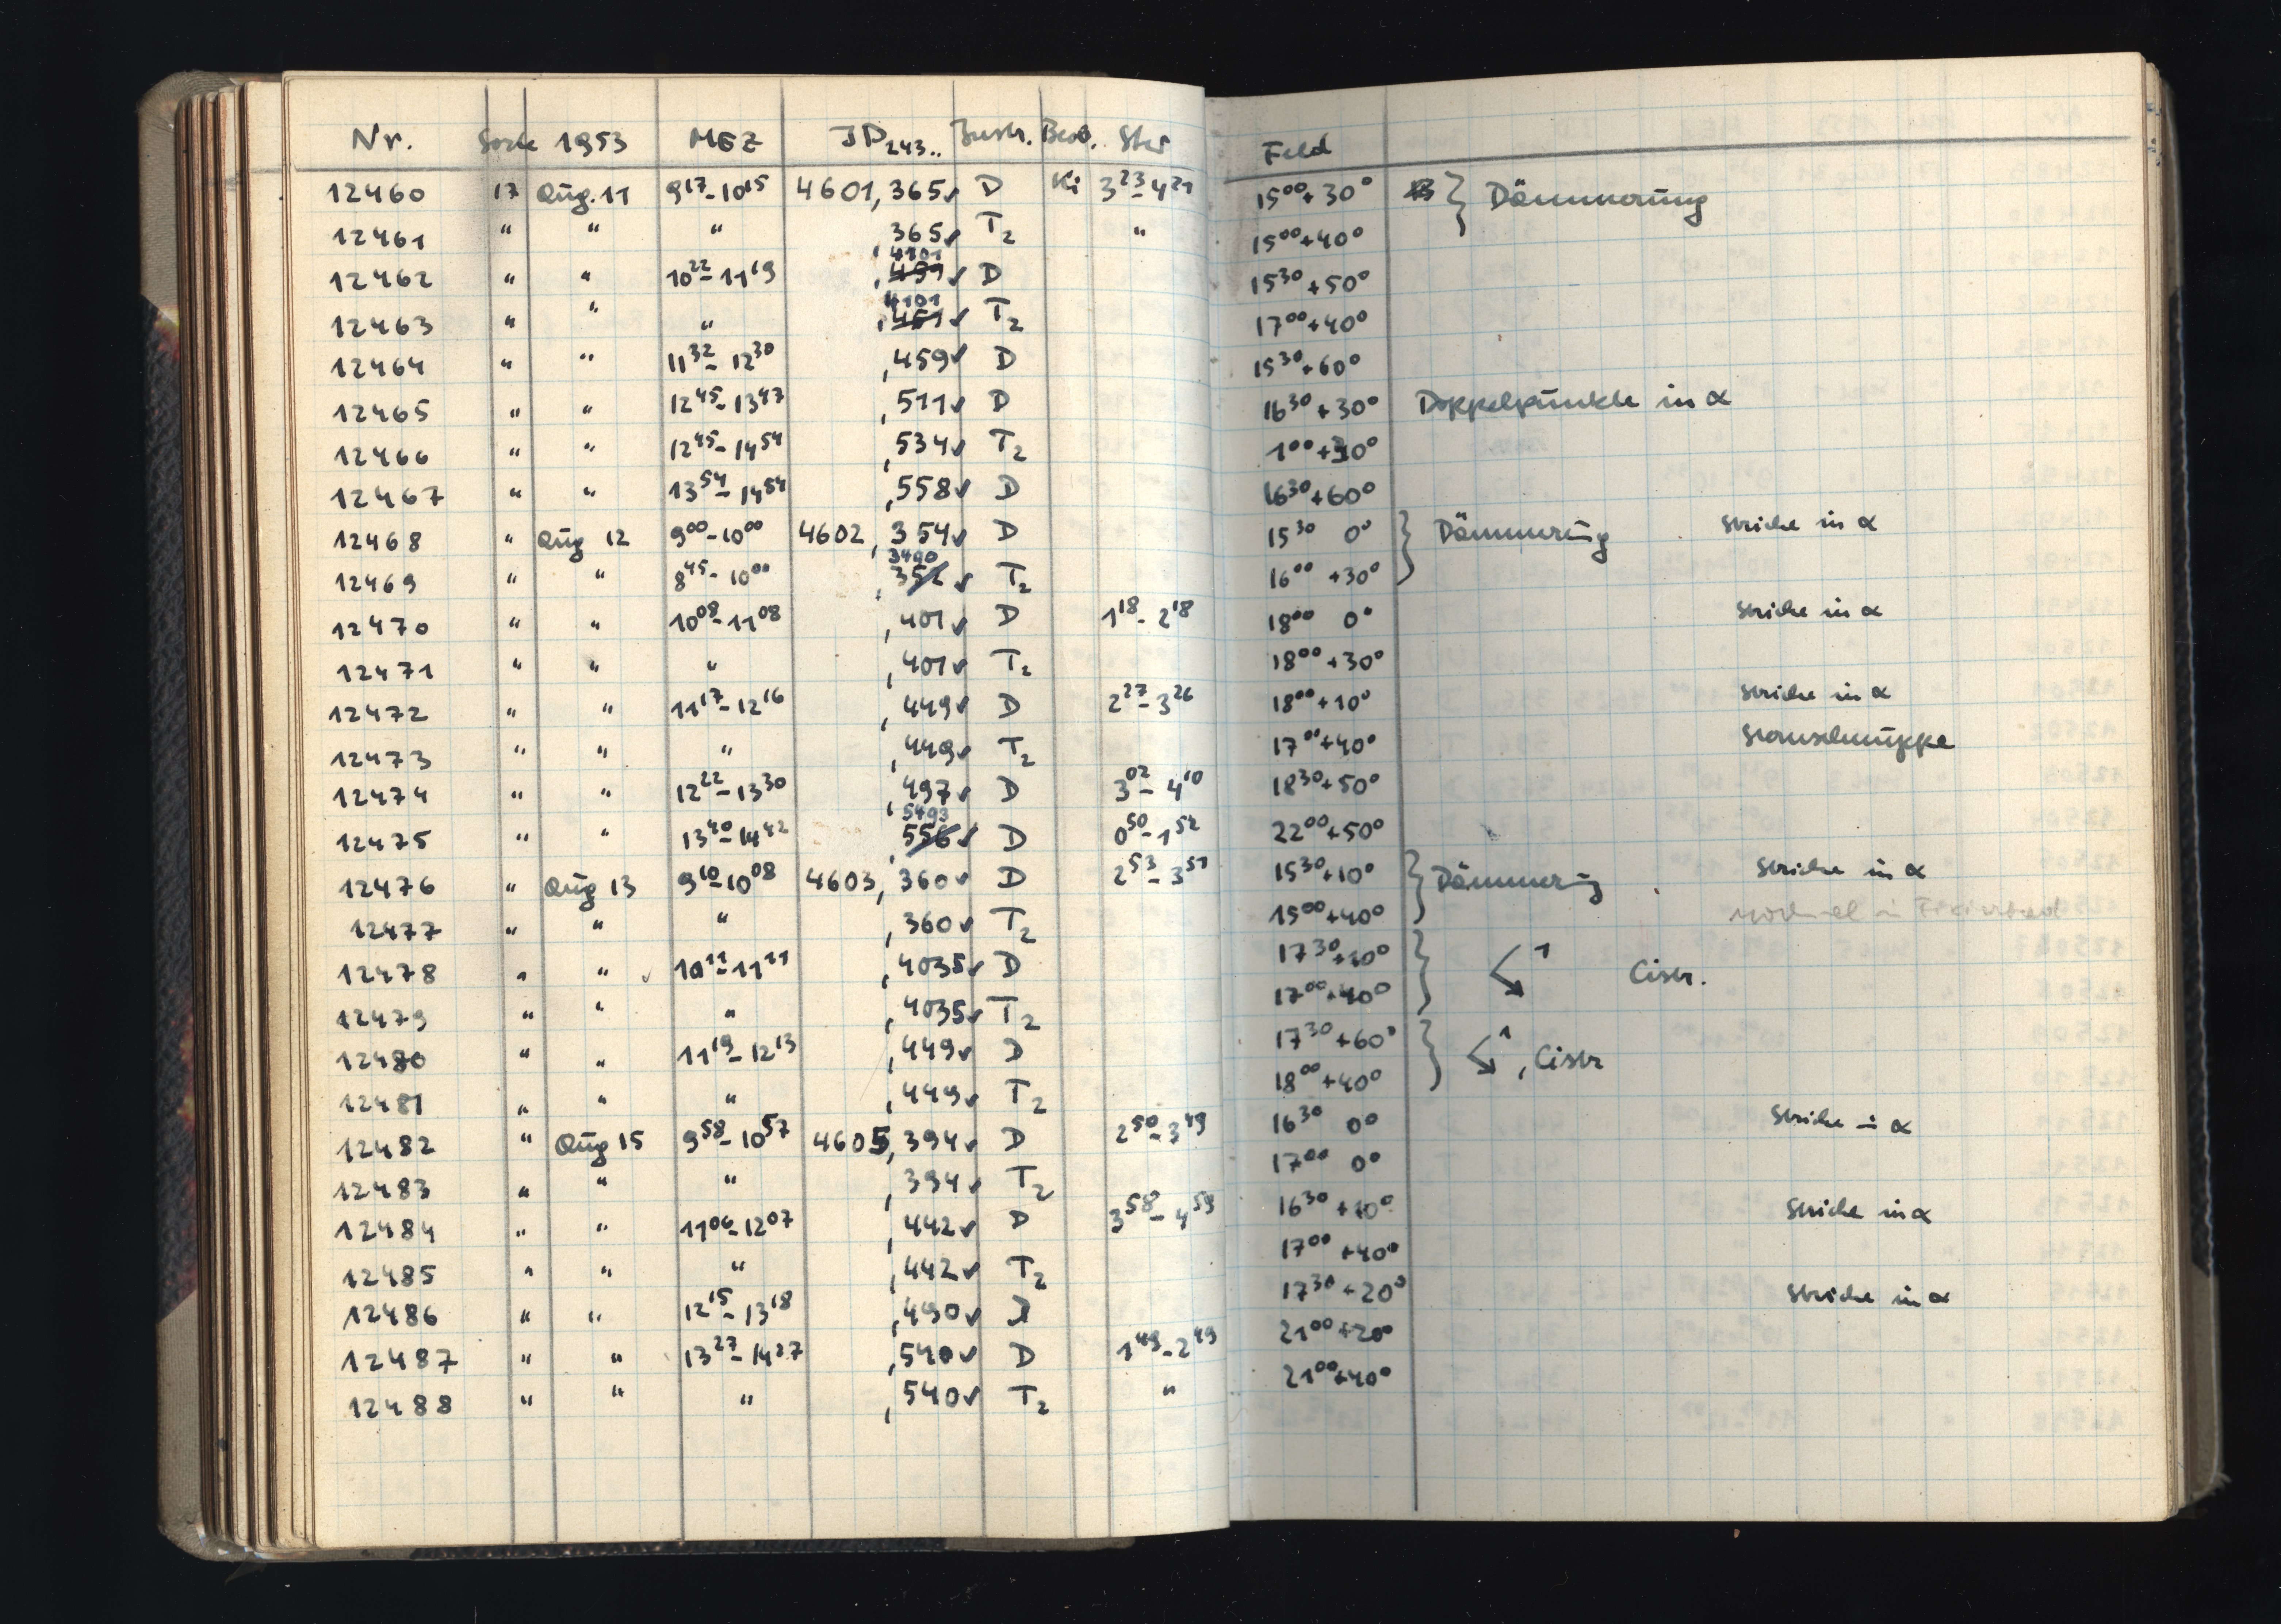 Nr. Sorte 1953 MEZ JD 243.. Instr. Beob. Stw Feld
12460 17 Aug. 11 9¹⁷-10¹⁵ 4601,365✓ D Ki 3²³-4²¹ 15⁰⁰+30° } Dämmerung
12461 " " " ,365✓ T₂ " 15⁰⁰+40°
12462 " " 10²²-11¹⁹ ,4101 ✓ D 15³⁰+50°
12463 " " " ,4101 ✓ T₂ 17⁰⁰+40°
12464 " " 11³²-12³⁰ ,459✓ D 15³⁰+60°
12465 " " 12⁴⁵-13⁴⁷ ,511✓ D 16³⁰+30° Doppelpunkte in α
12466 " " 12⁴⁵-14⁵⁴ ,534✓ T₂ 1⁰⁰+30°
12467 " " 13⁵⁴-14⁵⁴ ,558✓ D 16³⁰+60°
12468 " Aug 12 9⁰⁰-10⁰⁰ 4602,354✓ D 15³⁰ 0° } Dämmerung Striche in α
12469 " " 8⁴⁵-10⁰⁰ ,3490 ✓ T₂ 16⁰⁰+30°
12470 " " 10⁰⁸-11⁰⁸ ,401✓ D 1¹⁸-2¹⁸ 18⁰⁰ 0° Striche in α
12471 " " " ,401✓ T₂ 18⁰⁰+30°
12472 " " 11¹⁷-12¹⁶ ,449✓ D 2²⁷-3²⁶ 18⁰⁰+10° Striche in α
12473 " " " ,449✓ T₂ 17⁰⁰+40° Sternschnuppe
12474 " " 12²²-13³⁰ ,497✓ D 3⁰²-4¹⁰ 18³⁰+50°
12475 " " 13⁴⁰-14⁴² ,5493 ✓ D 0⁵⁰-1⁵² 22⁰⁰+50°
12476 " Aug 13 9¹⁰-10⁰⁸ 4603,360✓ D 2⁵³-3⁵¹ 15³⁰+10° } Dämmerung Striche in α
12477 " " " ,360✓ T₂ 15⁰⁰+40° nochmal in Fixierbad
12478 " " ✓ 10¹¹-11¹¹ ,4035✓ D 17³⁰+20° } ↘ 1 Cistr.
12479 " " " ,4035✓ T₂ 17⁰⁰+40°
12480 " " 11¹⁹-12¹³ ,449✓ D 17³⁰+60° } ↘ 1, Cistr
12481 " " " ,449✓ T₂ 18⁰⁰+40°
12482 " Aug 15 9⁵⁸-10⁵⁷ 4605,394✓ D 2⁵⁰-3⁴⁹ 16³⁰ 0° Striche in α
12483 " " " ,394✓ T₂ 17⁰⁰ 0°
12484 " " 11⁰⁶-12⁰⁷ ,442✓ D 3⁵⁸-4⁵⁹ 16³⁰+10° Striche in α
12485 " " " ,442✓ T₂ 17⁰⁰+40°
12486 " " 12¹⁵-13¹⁸ ,490✓ D 17³⁰+20° Striche in α
12487 " " 13²⁷-14²⁷ ,540✓ D 1⁴⁹-2⁴⁹ 21⁰⁰+20°
12488 " " " ,540✓ T₂ " 21⁰⁰+40°